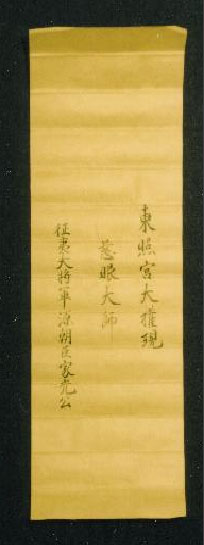 東照宮大権現
慈眼大師
征夷大将軍源朝臣家光公